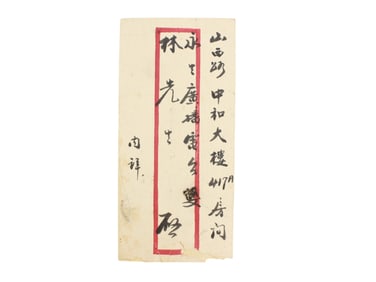 山西路 中和大楼417A房间
永生廣播電台
林先生 啟
内詳